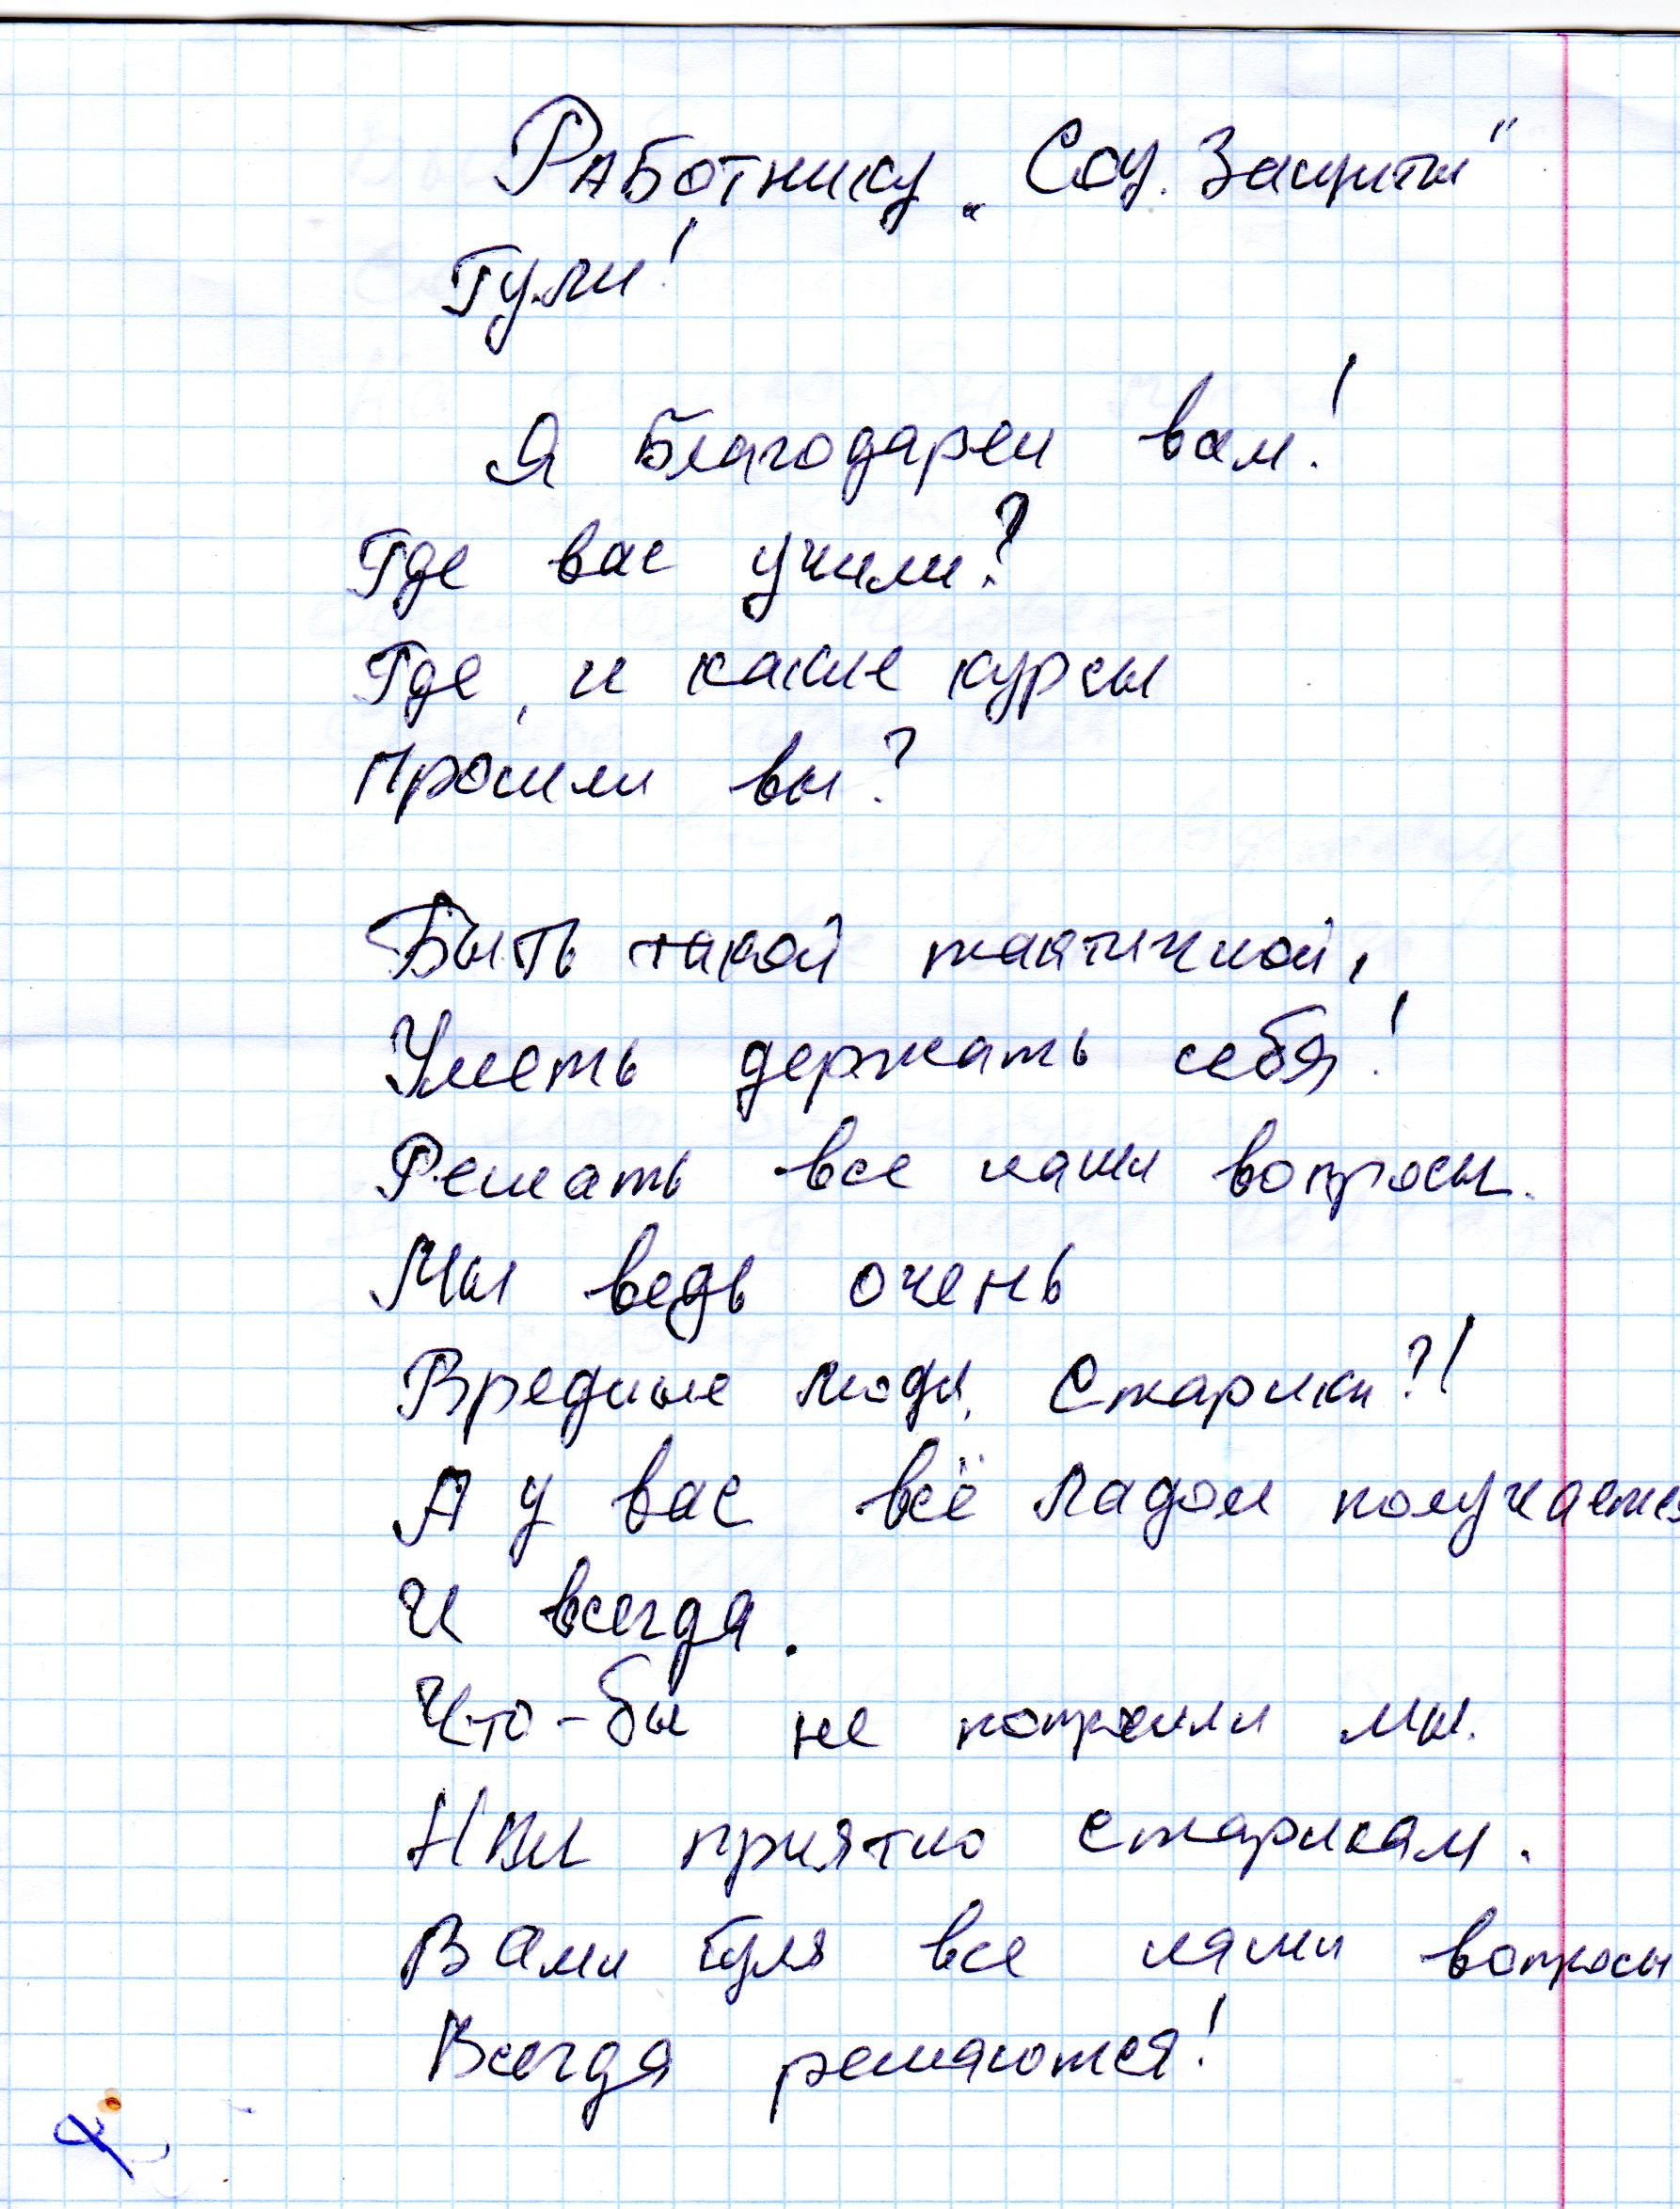 Работнику „Соц. Защиты"
Гули!
Я благодарен вам!
Где вас учили?
Где, и какие курсы
Прошли вы?
Быть такой тактичной,
Уметь держать себя!
Решать все наши вопросы.
Мы ведь очень
Вредные люди, Старики?!
А у вас всё ладом получается
И всегда.
Что-бы не попросили мы.
Нам приятно старикам.
Вами Гуля все наши вопросы
Всегда решаются!